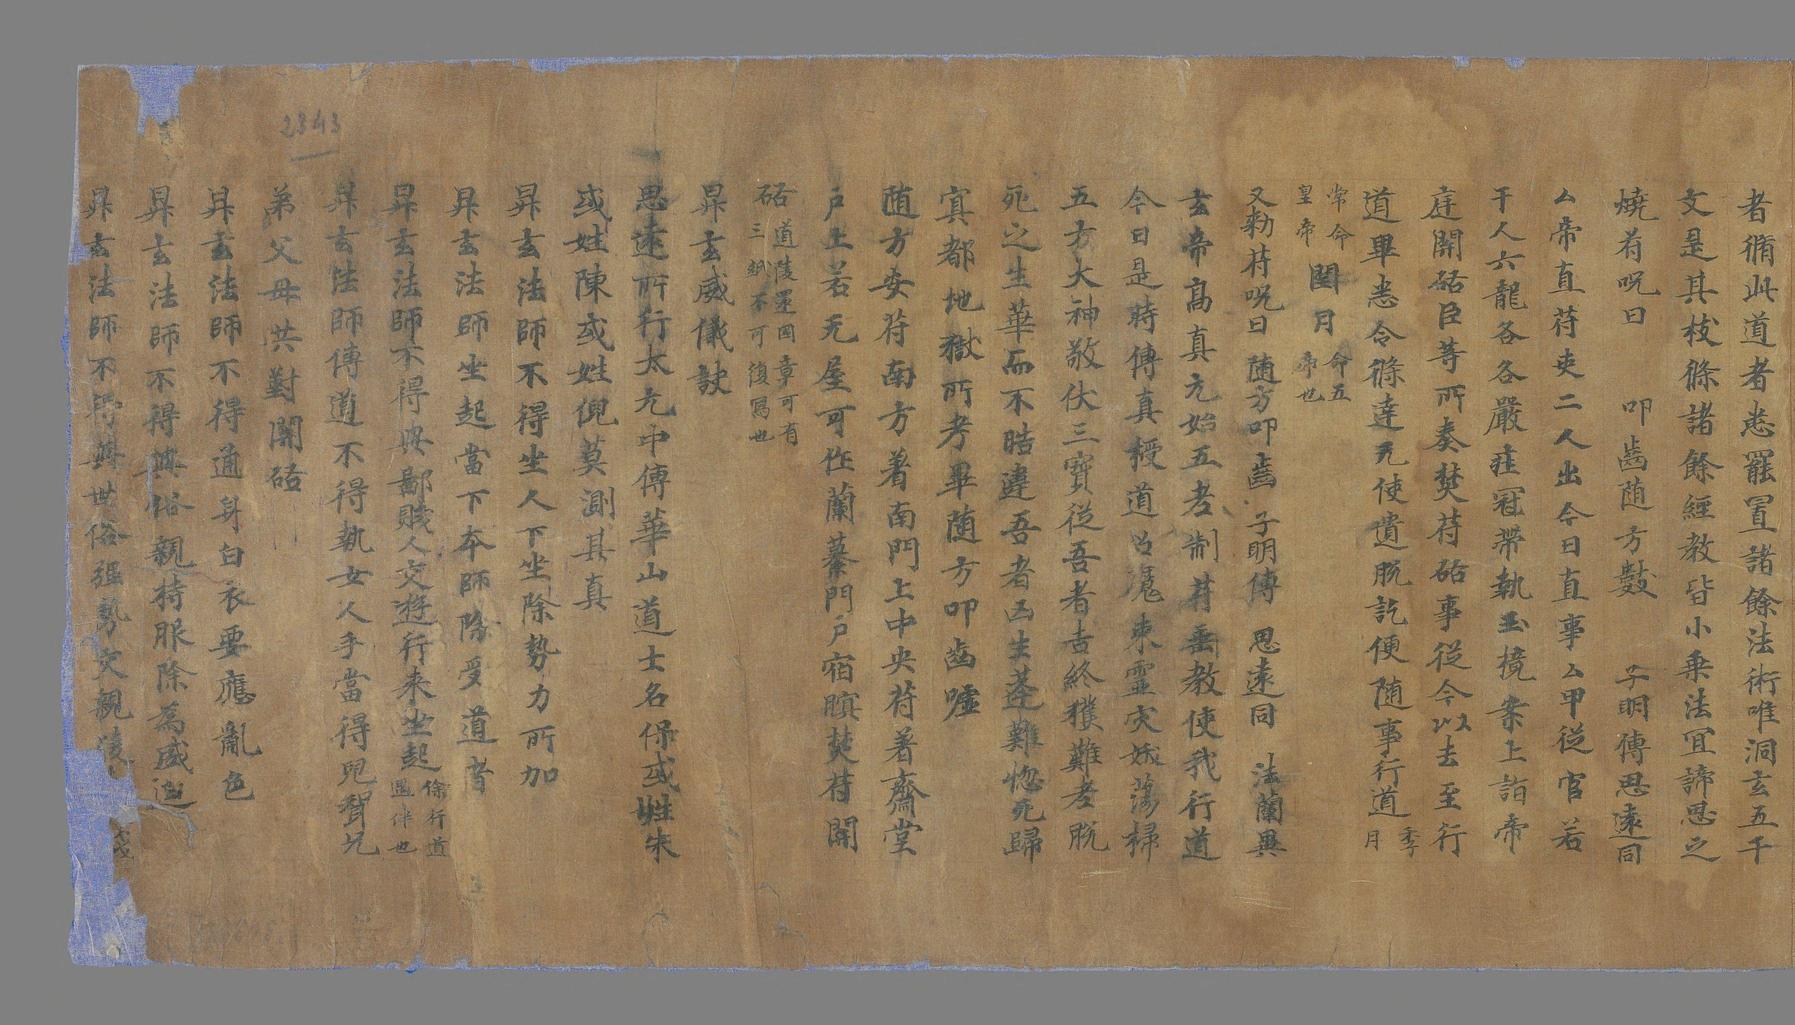 者脩此道者悉罷置諸餘法術唯洞玄五千
文是其枝條諸餘經教皆小乘法冝諦思之
燒苻呪曰 叩齒随方數 子明傳思遠同
厶帝直苻吏二人出今日直事厶甲從官若
干人六龍各各嚴莊冠帶執玉境案上詣帝
庭開啓臣等所奏焚苻啓事從今以去至行
道畢悉令條達无使遺脱訖便随事行道 季月
常命皇帝 閏月 命五帝也
又勑苻呪曰 随方叩齒 子明傳 思遠同 法蘭異
玄帝高真元始五老制苻垂教使我行道
今日是時傳真授道召魔束靈灾妖蕩掃
五方大神敬伏三寶從吾者吉終獲難老脱
死之生華而不晧違吾者凶生蓬難惚死歸
冥都地獄所考畢随方叩齒噓
随方安苻南方著南門上中央苻著齋堂
戸上若无屋可作蘭蓁門戸宿瞑焚苻開
啓 道陵還國章可有三紙不可復寫也
昇玄威儀訣
思遠所行太元中傳華山道士名保或姓朱
或姓陳或姓倪莫測其真
昇玄法師不得坐人下坐除勢力所加
昇玄法師坐起當下夲師除受道者
昇玄法師不得與鄙賤人交遊行来坐起 除行道遇伴也
昇玄法師傳道不得執女人手當得兒聟兄
弟父母共對開啓
昇玄法師不得通身白衣要應亂色
昇玄法師不得與俗親持服除為威迫
昇玄法師不得與世俗强勢交親淩
2343